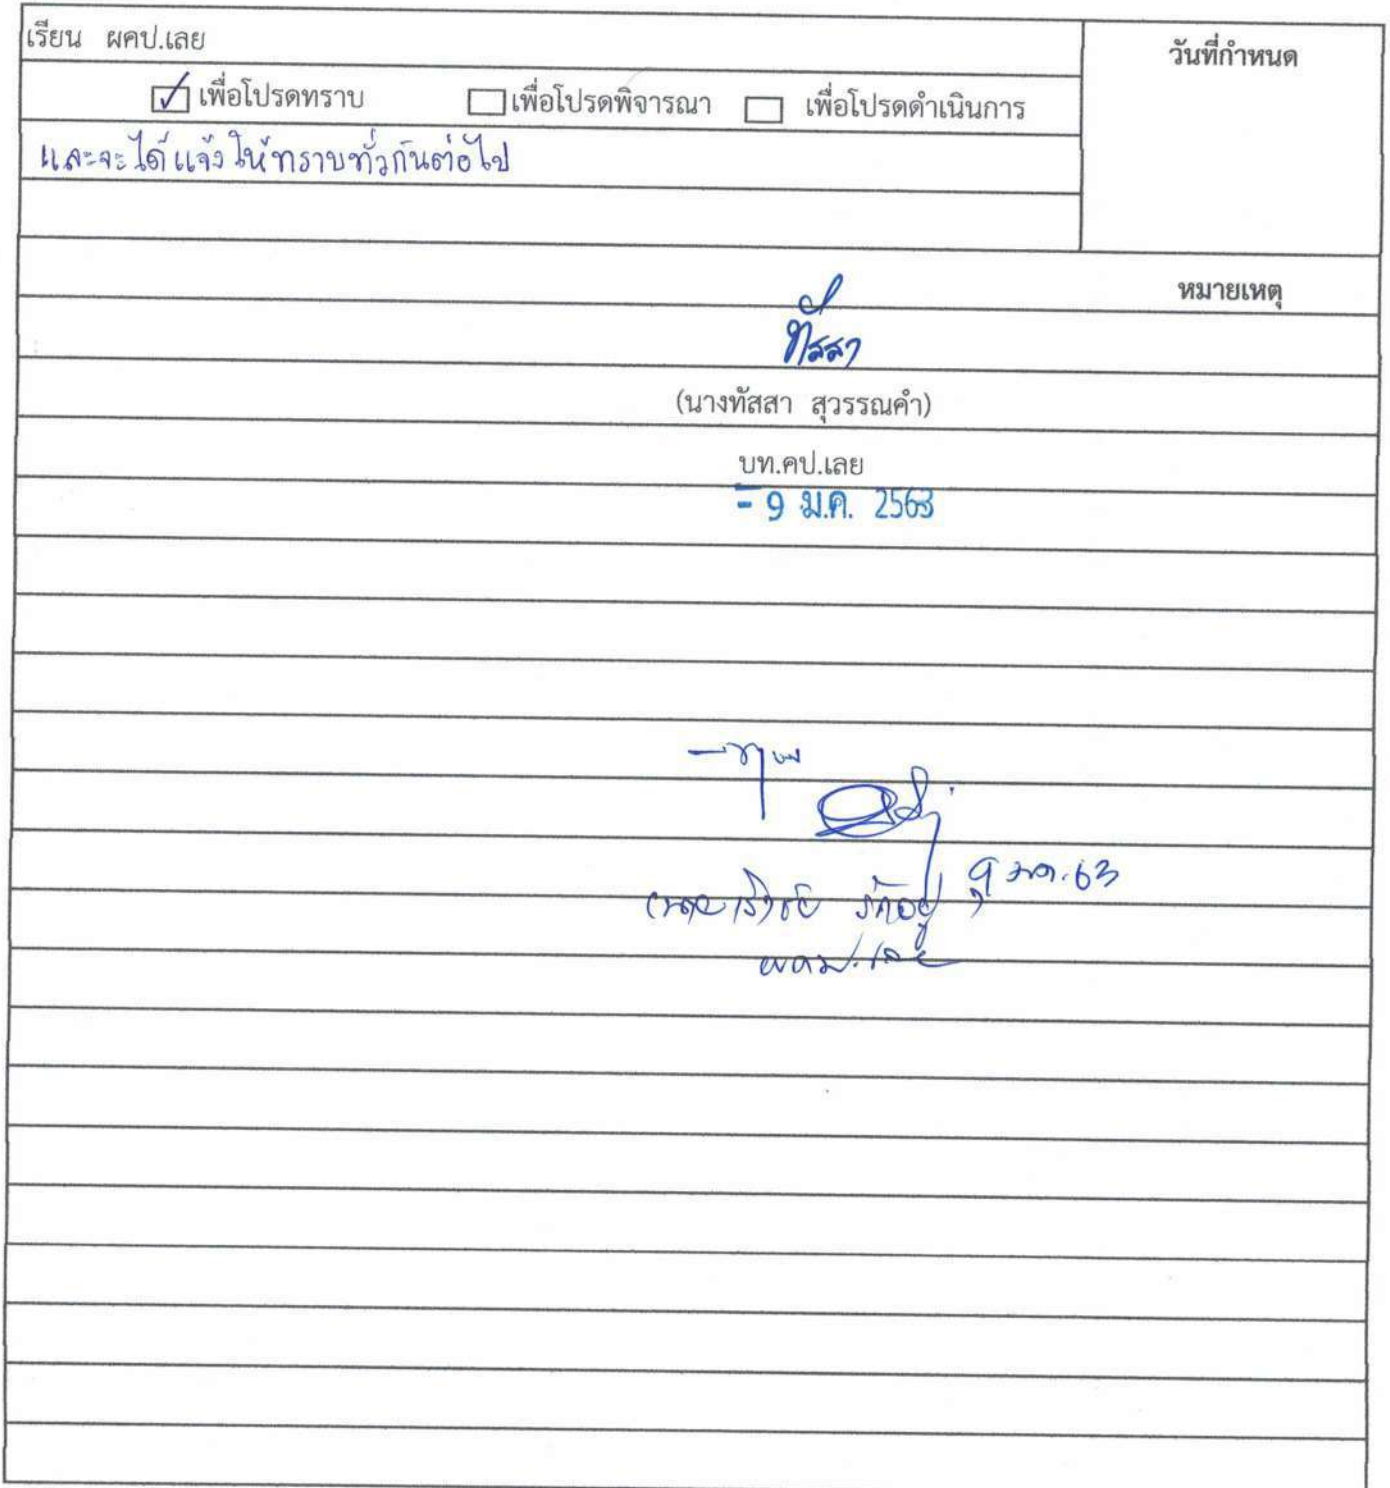 เรียน ผคป.เลย
วันที่กำหนด
เพื่อโปรดทราบ เพื่อโปรดพิจารณา เพื่อโปรดดำเนินการ
และจะได้แจ้งให้ทราบทั่วกันต่อไป
หมายเหตุ
ทัสสา
(นางทัสสา สุวรรณคำ)
บท.คป.เลย
- 9 ม.ค. 2563
9 มค. 63
ผคป.เลย